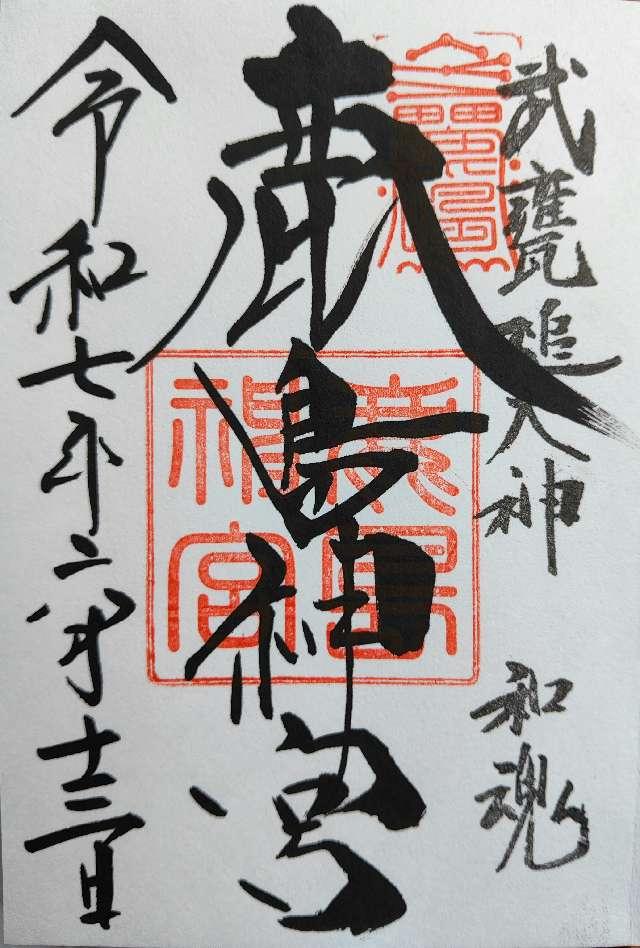 武甕槌大神 和魂
鹿島神宮
鹿島神宮
令和七年二月十三日